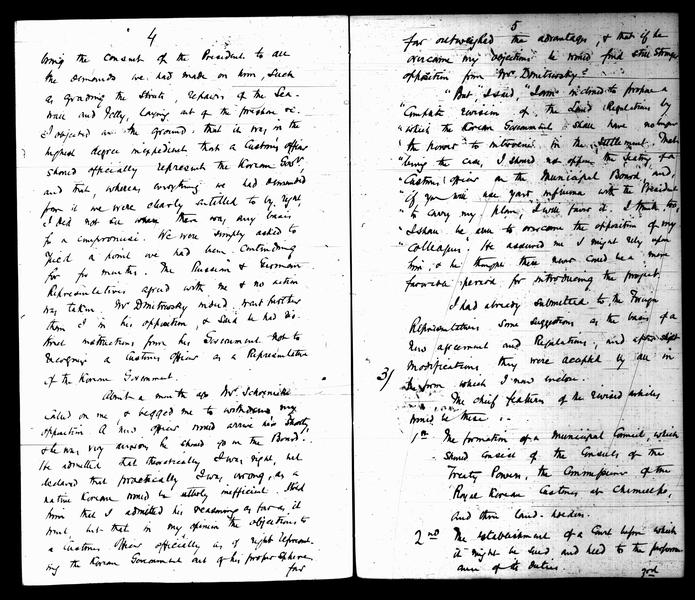 4
bring the consent of the President to all
the demands we had made on him, such
as grading the Streets, repairs of the Sea-
wall and Jetty, laying out of the foreshore &c.
I objected on the ground that it was in the
highest degree inexpedient that a Customs officer
should officially represent the Korean Govt,
and that, whereas everything we had demanded
from it we were clearly entitled to by right,
I did not see where there was any basis
for a compromise. We were simply asked to
yield a point we had been contending
for for months. The Russian & German
Representatives agreed with me & no action
was taken. Mr Dmitrevsky indeed went further
than I in his opposition, & said he had dis-
tinct instructions from his Government not to
recognize a Customs officer as a Representative
of the Korean Government.
About a month ago Mr. Schoenicke
called on me & begged me to withdraw my
opposition. A new officer would arrive here shortly,
& he was very anxious he should go on the Board.
He admitted that theoretically I was right, but
declared that practically I was wrong, as a
native Korean would be utterly inefficient. I told
him that I admitted his reasoning as far as it
went, but that in my opinion the objections to
a Customs officer officially as of right represent-
ing the Korean Government out of his proper sphere
far
5
far outweighed the advantages, & that if he
overcame my objections he would find still stronger
opposition from Mr. Dmitrevsky.
"But I said "I am inclined to propose a
"complete revision of the Land Regulations by
"which the Korean Government shall have no longer
"the power to intervene in the Settlement. That
"being the case, I should not oppose the seating of a
"Customs officer on the Municipal Board, and,
"if you will use your influence with the President
"to carry my plan, I will favor it. I think too,
"I shall be able to overcome the opposition of my
"colleagues". He assured me I might rely upon
him, & he thought there never could be a more
favorable period for introducing the project.
I had already submitted to the Foreign
Representatives some suggestions as the basis of a
new agreement and Regulations, and after slight
modifications they were accepted by all in
3/ the form which I now enclose.
The chief features of the revised articles
would be these:-
1st The formation of a Municipal Council, which
should consist of the Consuls of the
Treaty Powers, the Commissioner of the
Royal Korean Customs at Chemulpo,
and three land-holders.
2nd The establishment of a Court before which
it might be sued and held to the perform-
ance of its duties.
3rd